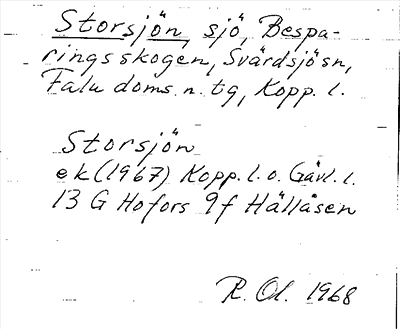 Storsjön, sjö, Bespa-
ringsskogen, Svärdsjösn,
Falu doms. n. tg, Kopp. l.
Storsjön
ek (1967) Kopp. l. o. Gävl. l.
13 G Hofors 9f Hällåsen
R. Ol. 1968